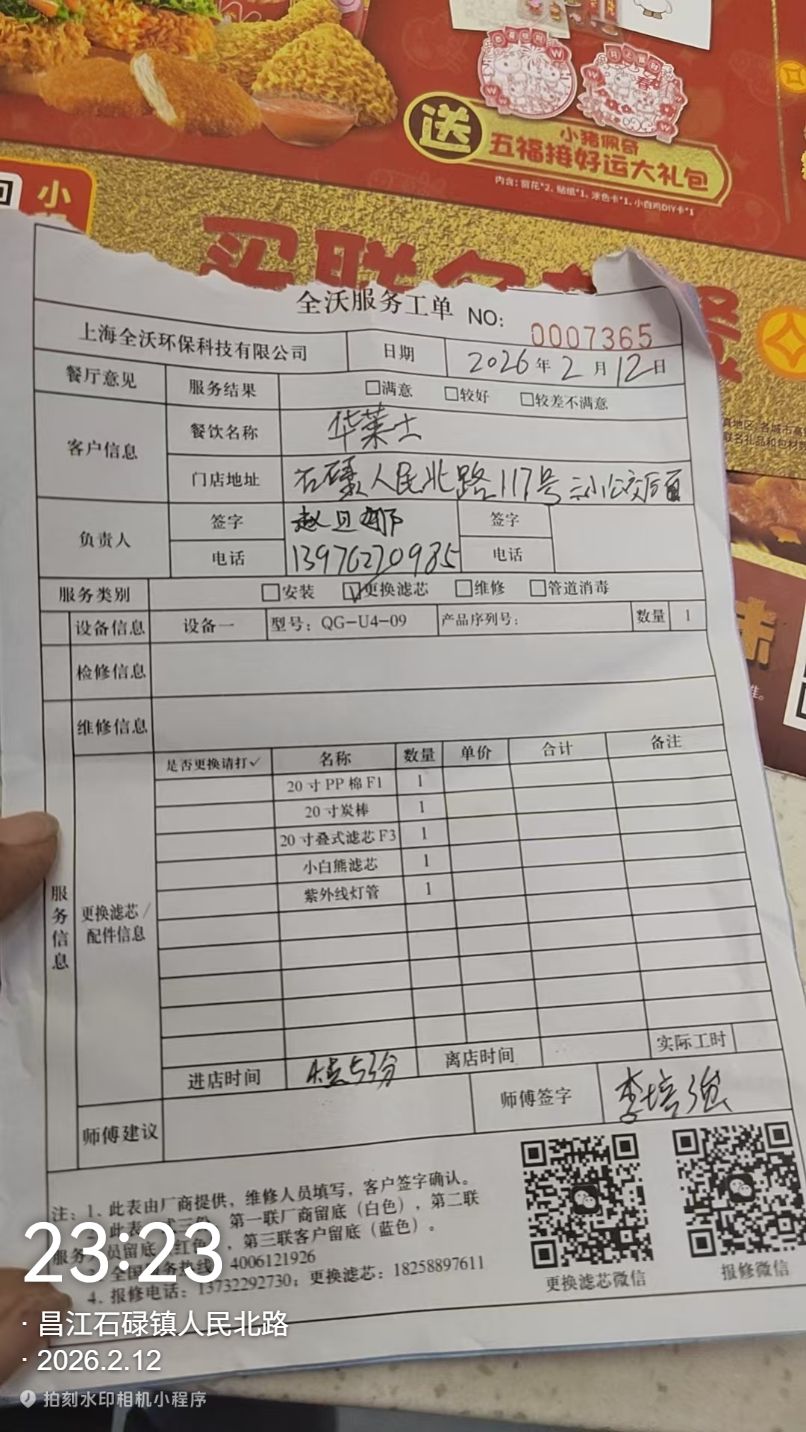 送
小猪佩奇
五福接好运大礼包
内含：窗花*2、贴纸*1、涂色卡*1、小白鸡DIY卡*1
小
全沃服务工单 NO: 0007365
上海全沃环保科技有限公司 日期 2026年2月12日
餐厅意见 服务结果 □满意 □较好 □较差不满意
客户信息 餐饮名称 华莱士
门店地址 石碌人民北路117号三小公交后面
负责人 签字 签字
电话 13976270985 电话
服务类别 □安装 ☑更换滤芯 □维修 □管道消毒
设备信息 设备一 型号：QG-U4-09 产品序列号： 数量 1
检修信息
维修信息
服务信息
更换滤芯/配件信息
是否更换请打✓ 名称 数量 单价 合计 备注
20寸PP棉F1 1
20寸炭棒 1
20寸叠式滤芯F3 1
小白熊滤芯 1
紫外线灯管 1
实际工时
进店时间 离店时间
师傅建议 师傅签字 李培强
注：1、此表由厂商提供，维修人员填写，客户签字确认。
此表一式三份，第一联厂商留底（白色），第二联
服务 员留底（红色），第三联客户留底（蓝色）。
3、全国服务热线：4006121926
4、报修电话：13732292730；更换滤芯：18258897611
更换滤芯微信
报修微信
23:23
· 昌江石碌镇人民北路
· 2026.2.12
拍刻水印相机小程序